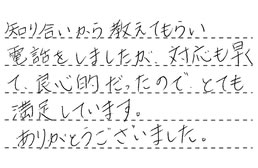 知り合いから教えてもらい
電話をしましたが、対応も早く
て、良心的だったので、とても
満足しています。
ありがとうございました。